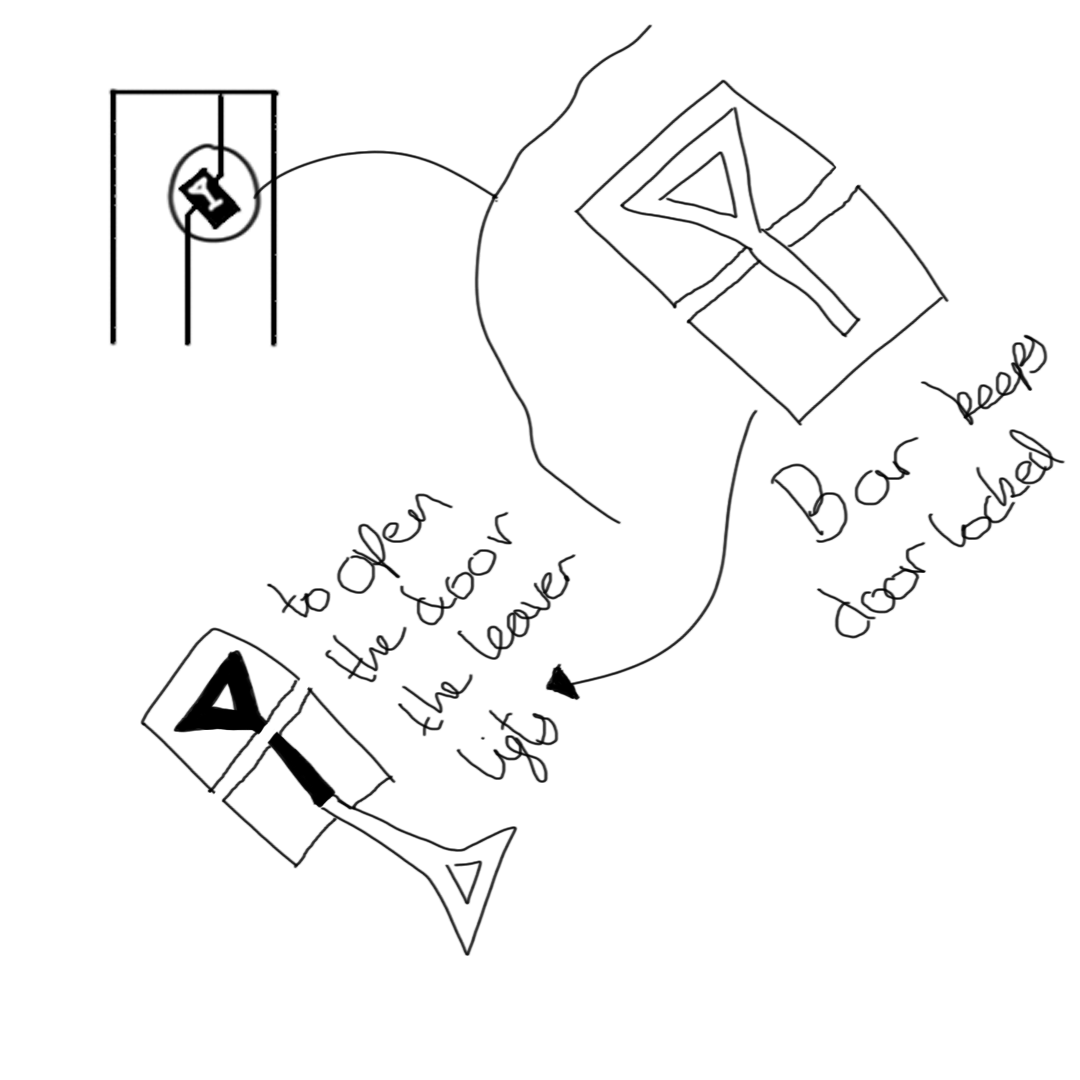 Bar keeps
door locked
to open
the door
the leaver
ligts